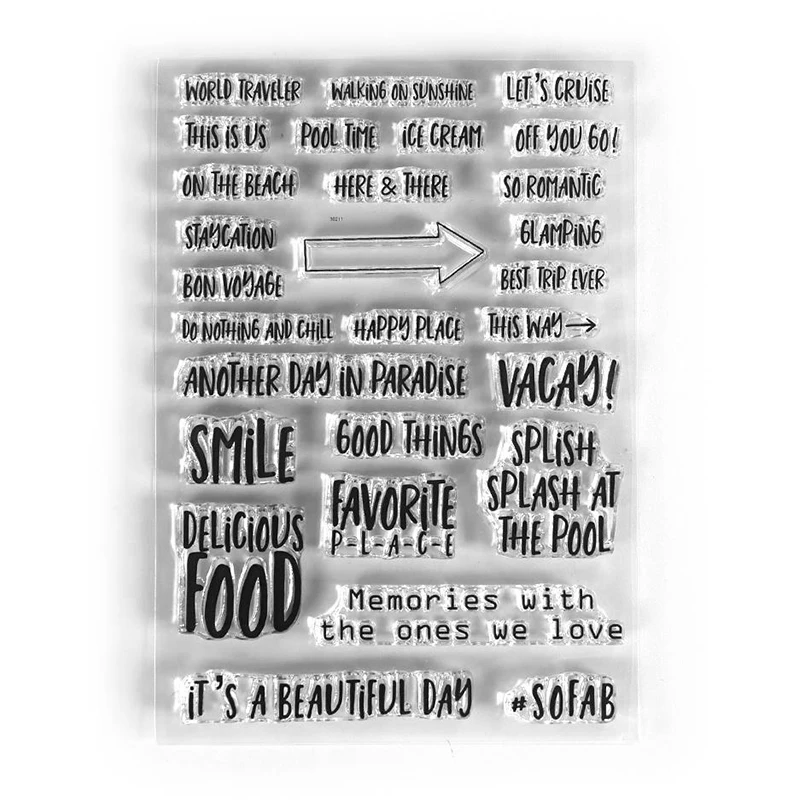 WORLD TRAVELER
WALKING ON SUNSHINE
LET'S CRUISE
THIS IS US
POOL TIME
ICE CREAM
OFF YOU GO!
ON THE BEACH
HERE & THERE
SO ROMANTIC
STAYCATION
30211
GLAMPING
BON VOYAGE
BEST TRIP EVER
DO NOTHING AND CHILL
HAPPY PLACE
THIS WAY→
ANOTHER DAY IN PARADISE
VACAY!
SMILE
GOOD THINGS
SPLISH
SPLASH AT
THE POOL
FAVORITE
P-L-A-C-E
DELICIOUS
FOOD
Memories with
the ones we love
IT'S A BEAUTIFUL DAY
#SOFAB